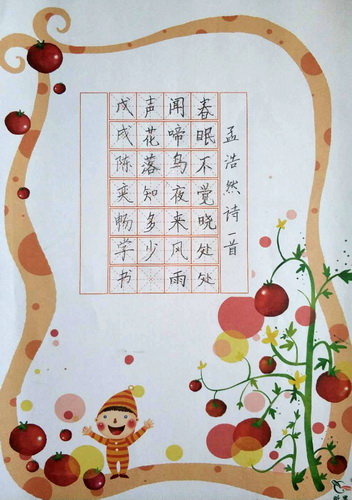 孟浩然诗一首
春眠不觉晓处处
闻啼鸟夜来风雨
声花落知多少
戊戌陈奕畅学书